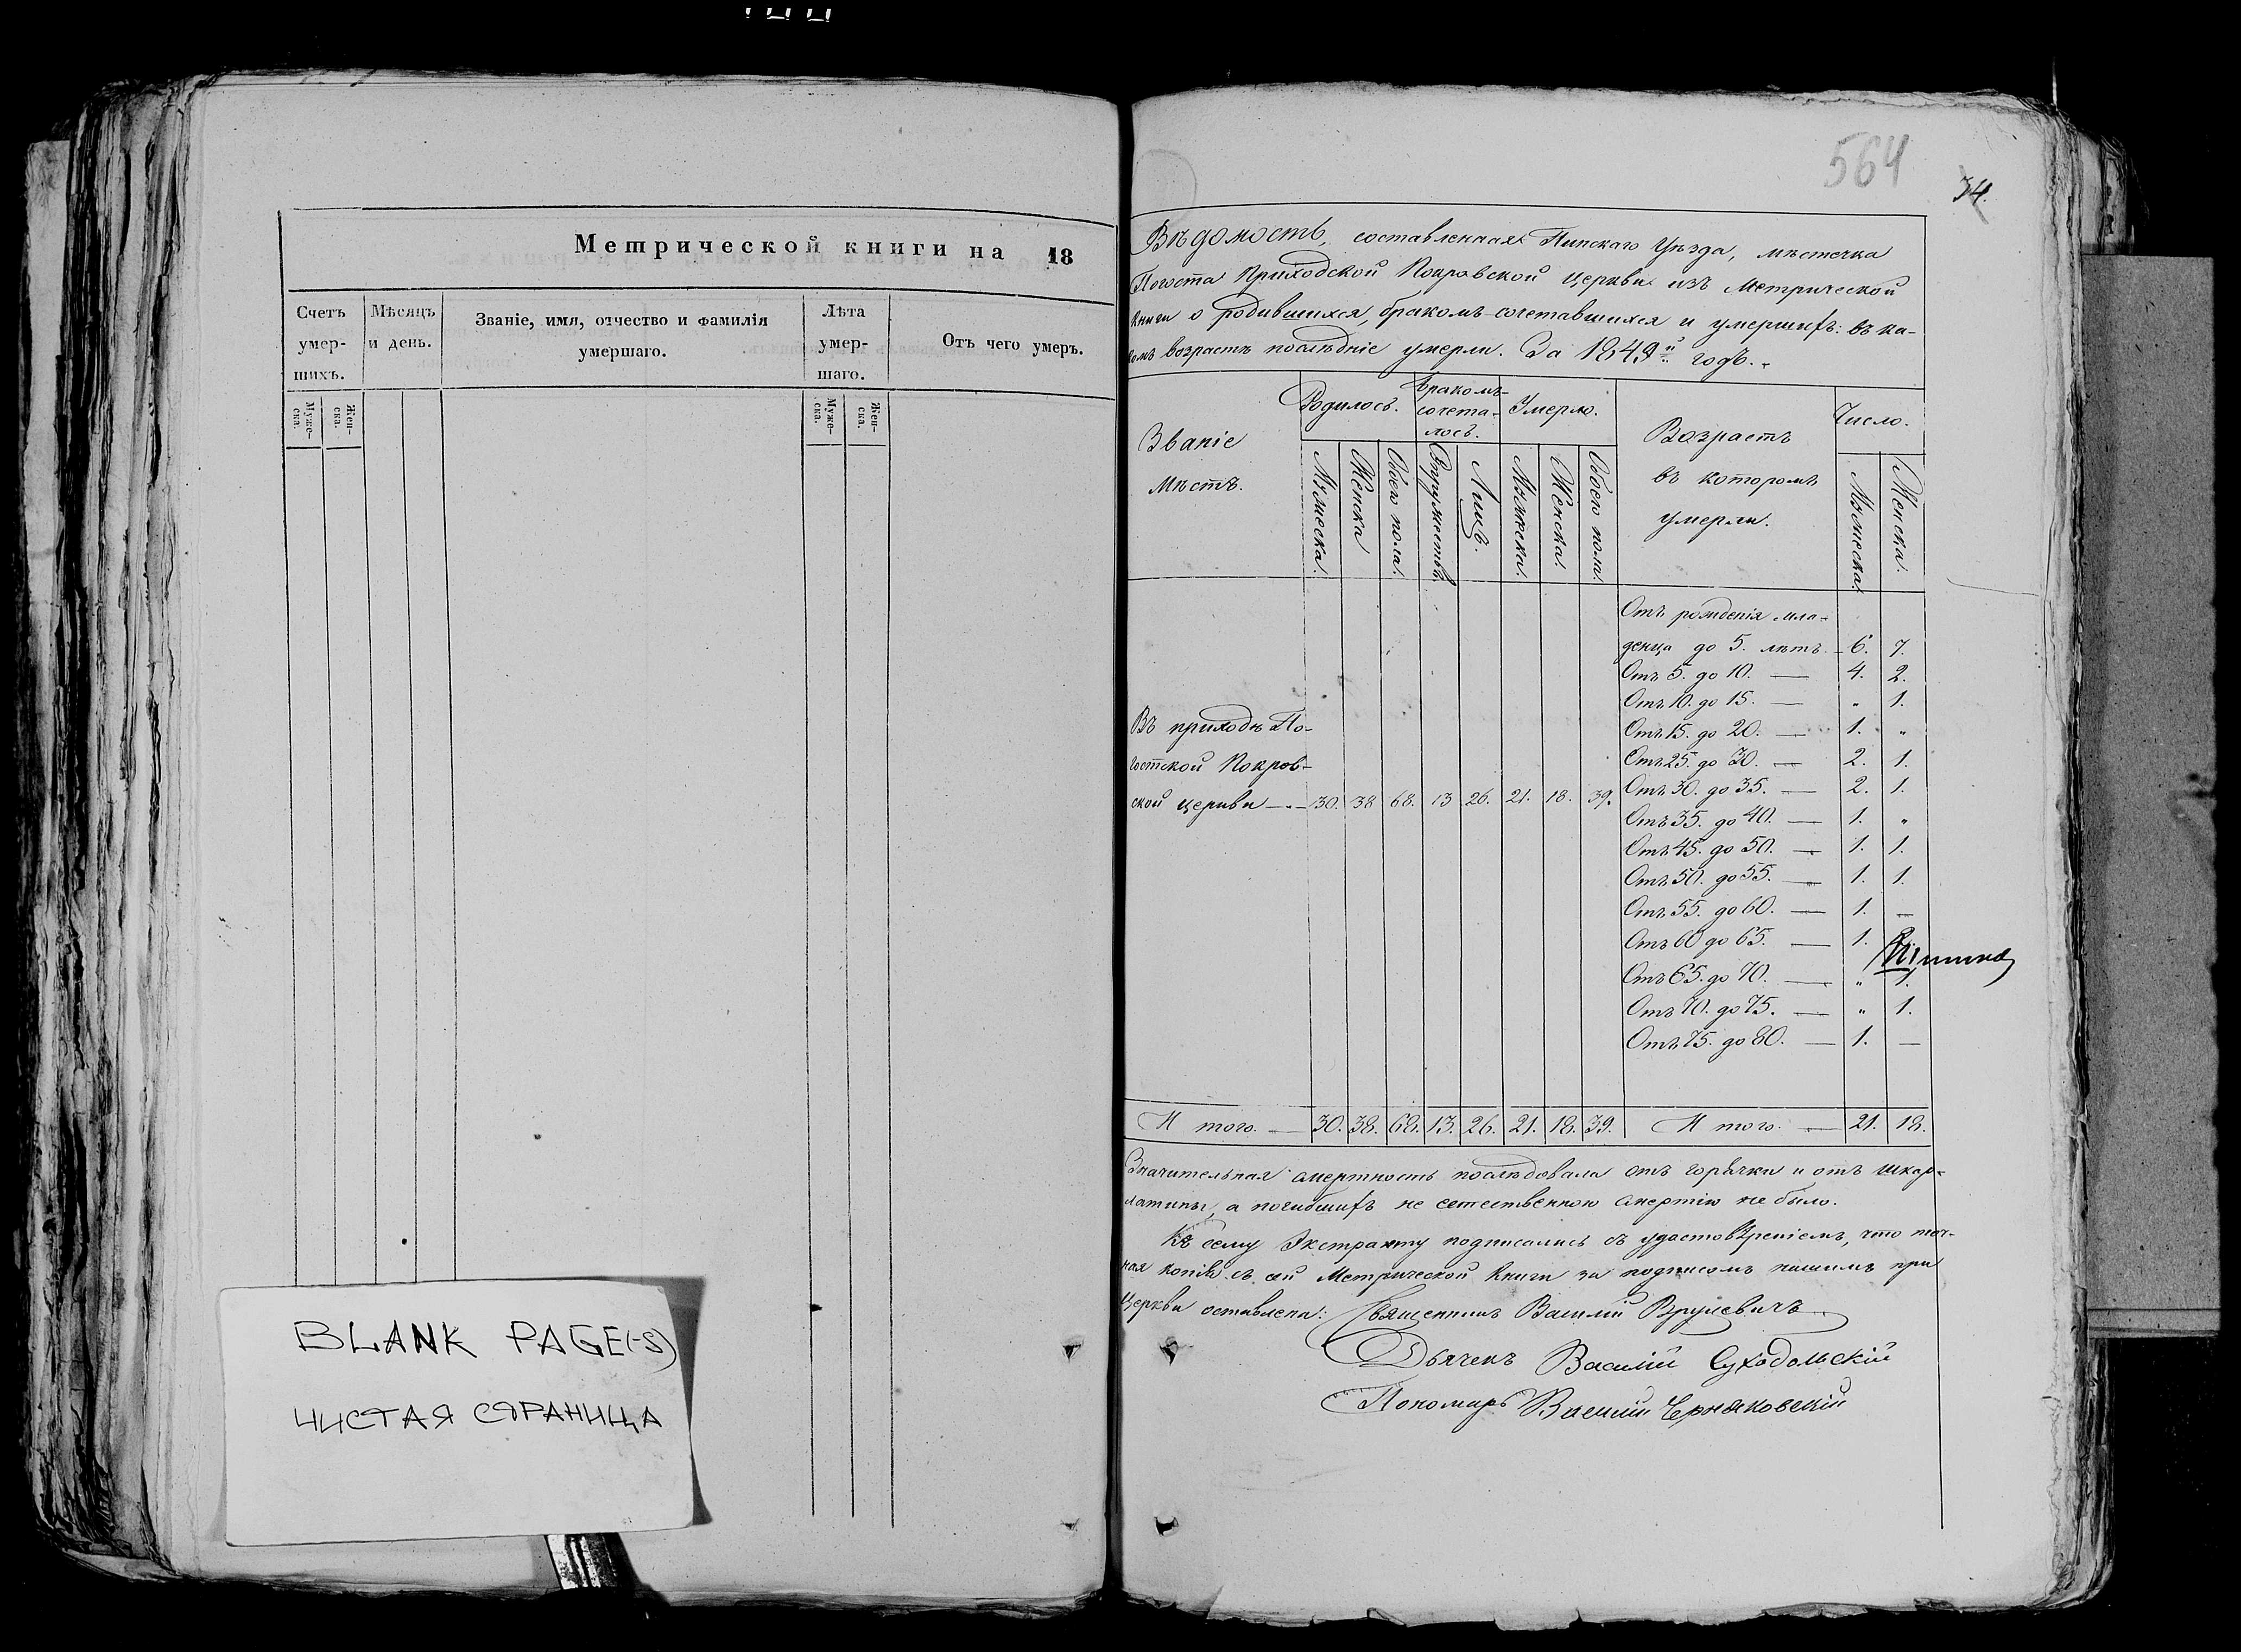 Метрической книги на 18
Счетъ умер-шихъ.
Мѣсяцъ и день.
Званіе, имя, отчество и фамилія умершаго.
Лѣта умер-шаго.
Отъ чего умеръ.
Муже-ска.
Жен-ска.
Муже-ска.
Жен-ска.
BLANK PAGE(-S)
ЧИСТАЯ СТРАНИЦА
564
34.
Вѣдомость, составленная Пинскаго Уѣзда, мѣстечка
Погоста Приходской Покровской Церкви изъ Метрической
книги о родившихся, бракомъ-сочетавшихся и умершихъ: въ ка-
комъ возрастѣ послѣдніе умерли. За 1849й годъ.
Званіе мѣстъ.
Родилось.
Бракомъ-сочета-лось.
Умерло.
Возрастъ въ которомъ умерли.
Число.
Мужеска.
Женска
Обоего пола.
Супружествъ.
Лицъ.
Мужеска.
Женска.
Обоего пола.
Мужеска.
Женска.
Отъ рожденія мла-
денца до 5. лѣтъ. 6. 7.
Отъ 5. до 10. — 4. 2.
Отъ 10. до 15. — " 1.
Отъ 15. до 20. — 1. "
Отъ 25. до 30. — 2. 1.
Отъ 30. до 35. — 2. 1.
Отъ 35. до 40. — 1. "
Отъ 45. до 50. — 1. 1.
Отъ 50. до 55. — 1. 1.
Отъ 55. до 60. — 1. —
Отъ 60 до 65. — 1. 2.
Отъ 65. до 70. — " 1.
Отъ 70. до 75. — " 1.
Отъ 75. до 80. — 1. —
Въ приходѣ По-
гостской Покров-
ской церкви — 30. 38 68. 13 26. 21. 18. 39.
И того. — 30. 38. 68. 13. 26. 21. 18. 39. И того. — 21. 18.
Значительная смертность послѣдовала отъ горячки и отъ шкар-
латины, а погибшихъ не естественною смертію не было.
Къ сему Экстракту подписались съ удостовѣреніемъ, что точ-
ная копія съ сей Метрической Книги за подписомъ нашимъ при
Церкви оставлена: Священникъ Василій
Дьячекъ Василій Суходольскій
Пономарь Василій Черняковскій